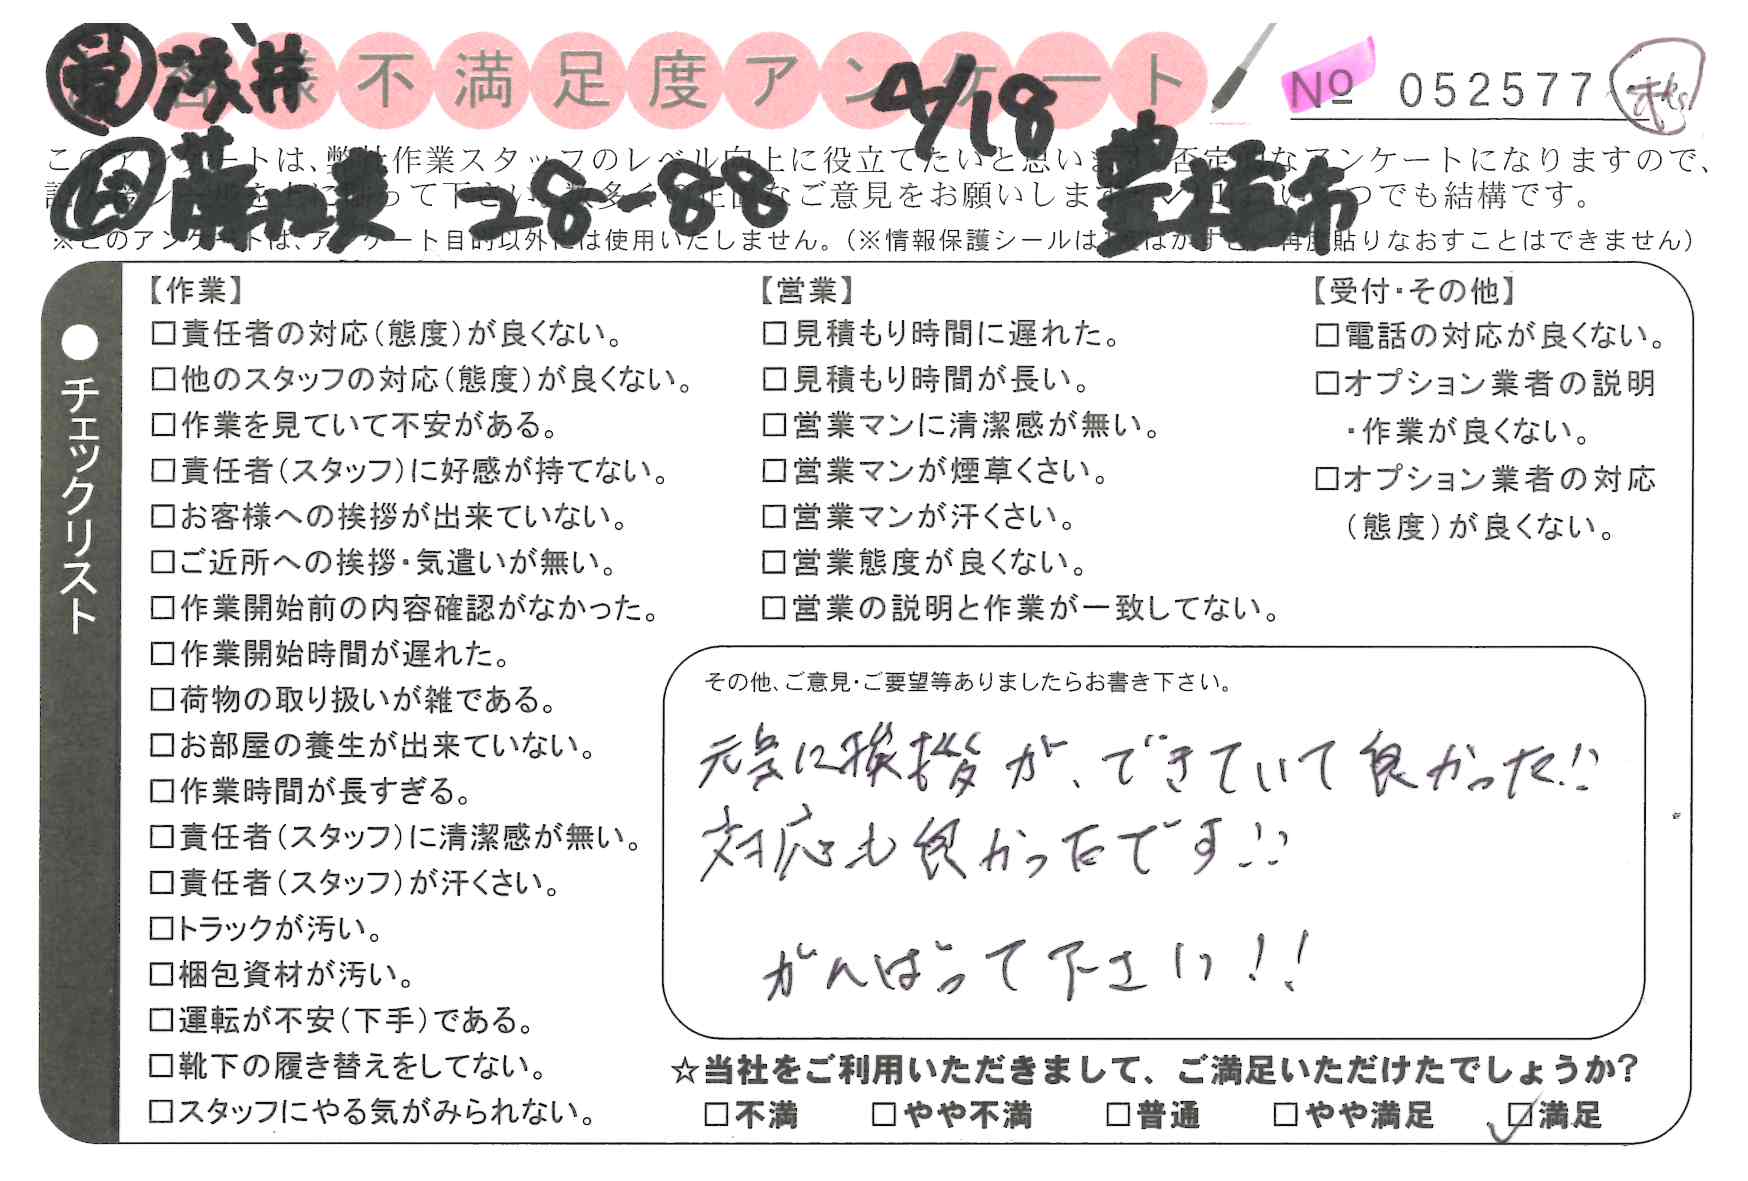 営 茂井 様不満足度アンケート 4/18 No 052577
このアンケートは、弊社作業スタッフのレベル向上に役立てたいと思います 否定的なアンケートになりますので、
28-88 豊橋市 ご意見をお願いします つでも結構です。
※このアンケートは、アンケート目的以外には使用いたしません。(※情報保護シールは 再度貼りなおすことはできません)
●チェックリスト
【作業】
□責任者の対応(態度)が良くない。
□他のスタッフの対応(態度)が良くない。
□作業を見ていて不安がある。
□責任者(スタッフ)に好感が持てない。
□お客様への挨拶が出来ていない。
□ご近所への挨拶・気遣いが無い。
□作業開始前の内容確認がなかった。
□作業開始時間が遅れた。
□荷物の取り扱いが雑である。
□お部屋の養生が出来ていない。
□作業時間が長すぎる。
□責任者(スタッフ)に清潔感が無い。
□責任者(スタッフ)が汗くさい。
□トラックが汚い。
□梱包資材が汚い。
□運転が不安(下手)である。
□靴下の履き替えをしてない。
□スタッフにやる気がみられない。
【営業】
□見積もり時間に遅れた。
□見積もり時間が長い。
□営業マンに清潔感が無い。
□営業マンが煙草くさい。
□営業マンが汗くさい。
□営業態度が良くない。
□営業の説明と作業が一致してない。
【受付・その他】
□電話の対応が良くない。
□オプション業者の説明
・作業が良くない。
□オプション業者の対応
(態度)が良くない。
その他、ご意見・ご要望等ありましたらお書き下さい。
元気に挨拶が、できていて良かった!!
対応も良かったです!!
がんばって下さい!!
☆当社をご利用いただきまして、ご満足いただけたでしょうか?
□不満 □やや不満 □普通 □やや満足 ☑満足